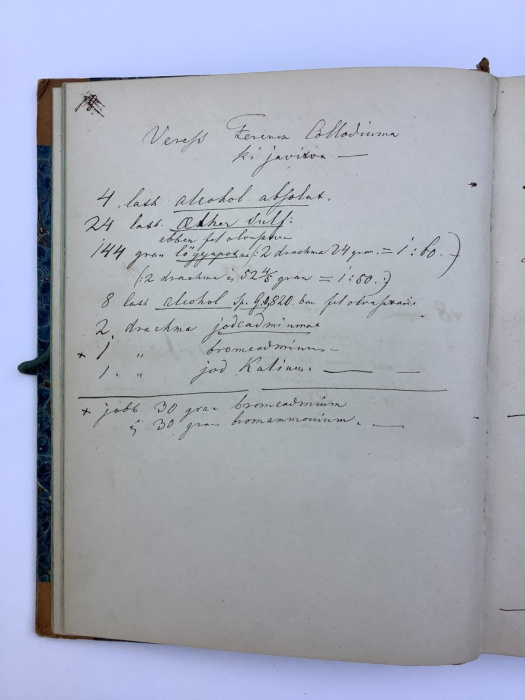 Veress Ferencz Collodiuma
ki javitva —
4. latt alcohol absolut.
24 latt. Æther sulf:
ebben fel olvasztva
144 gran lőgyapot (: 2 drachma 24 gran. = 1:60.)
(: 2 drachma és 52 4/5 gran = 1:50.)
8 latt alcohol sp. g. 820 ban fel olvasztani
2 drachma jodcadmiumot
+ 1 " bromcadmium —
1. " jod Kalium. — —
+ jobb 30 gran bromcadmium
és 30 gran bromammonium. —